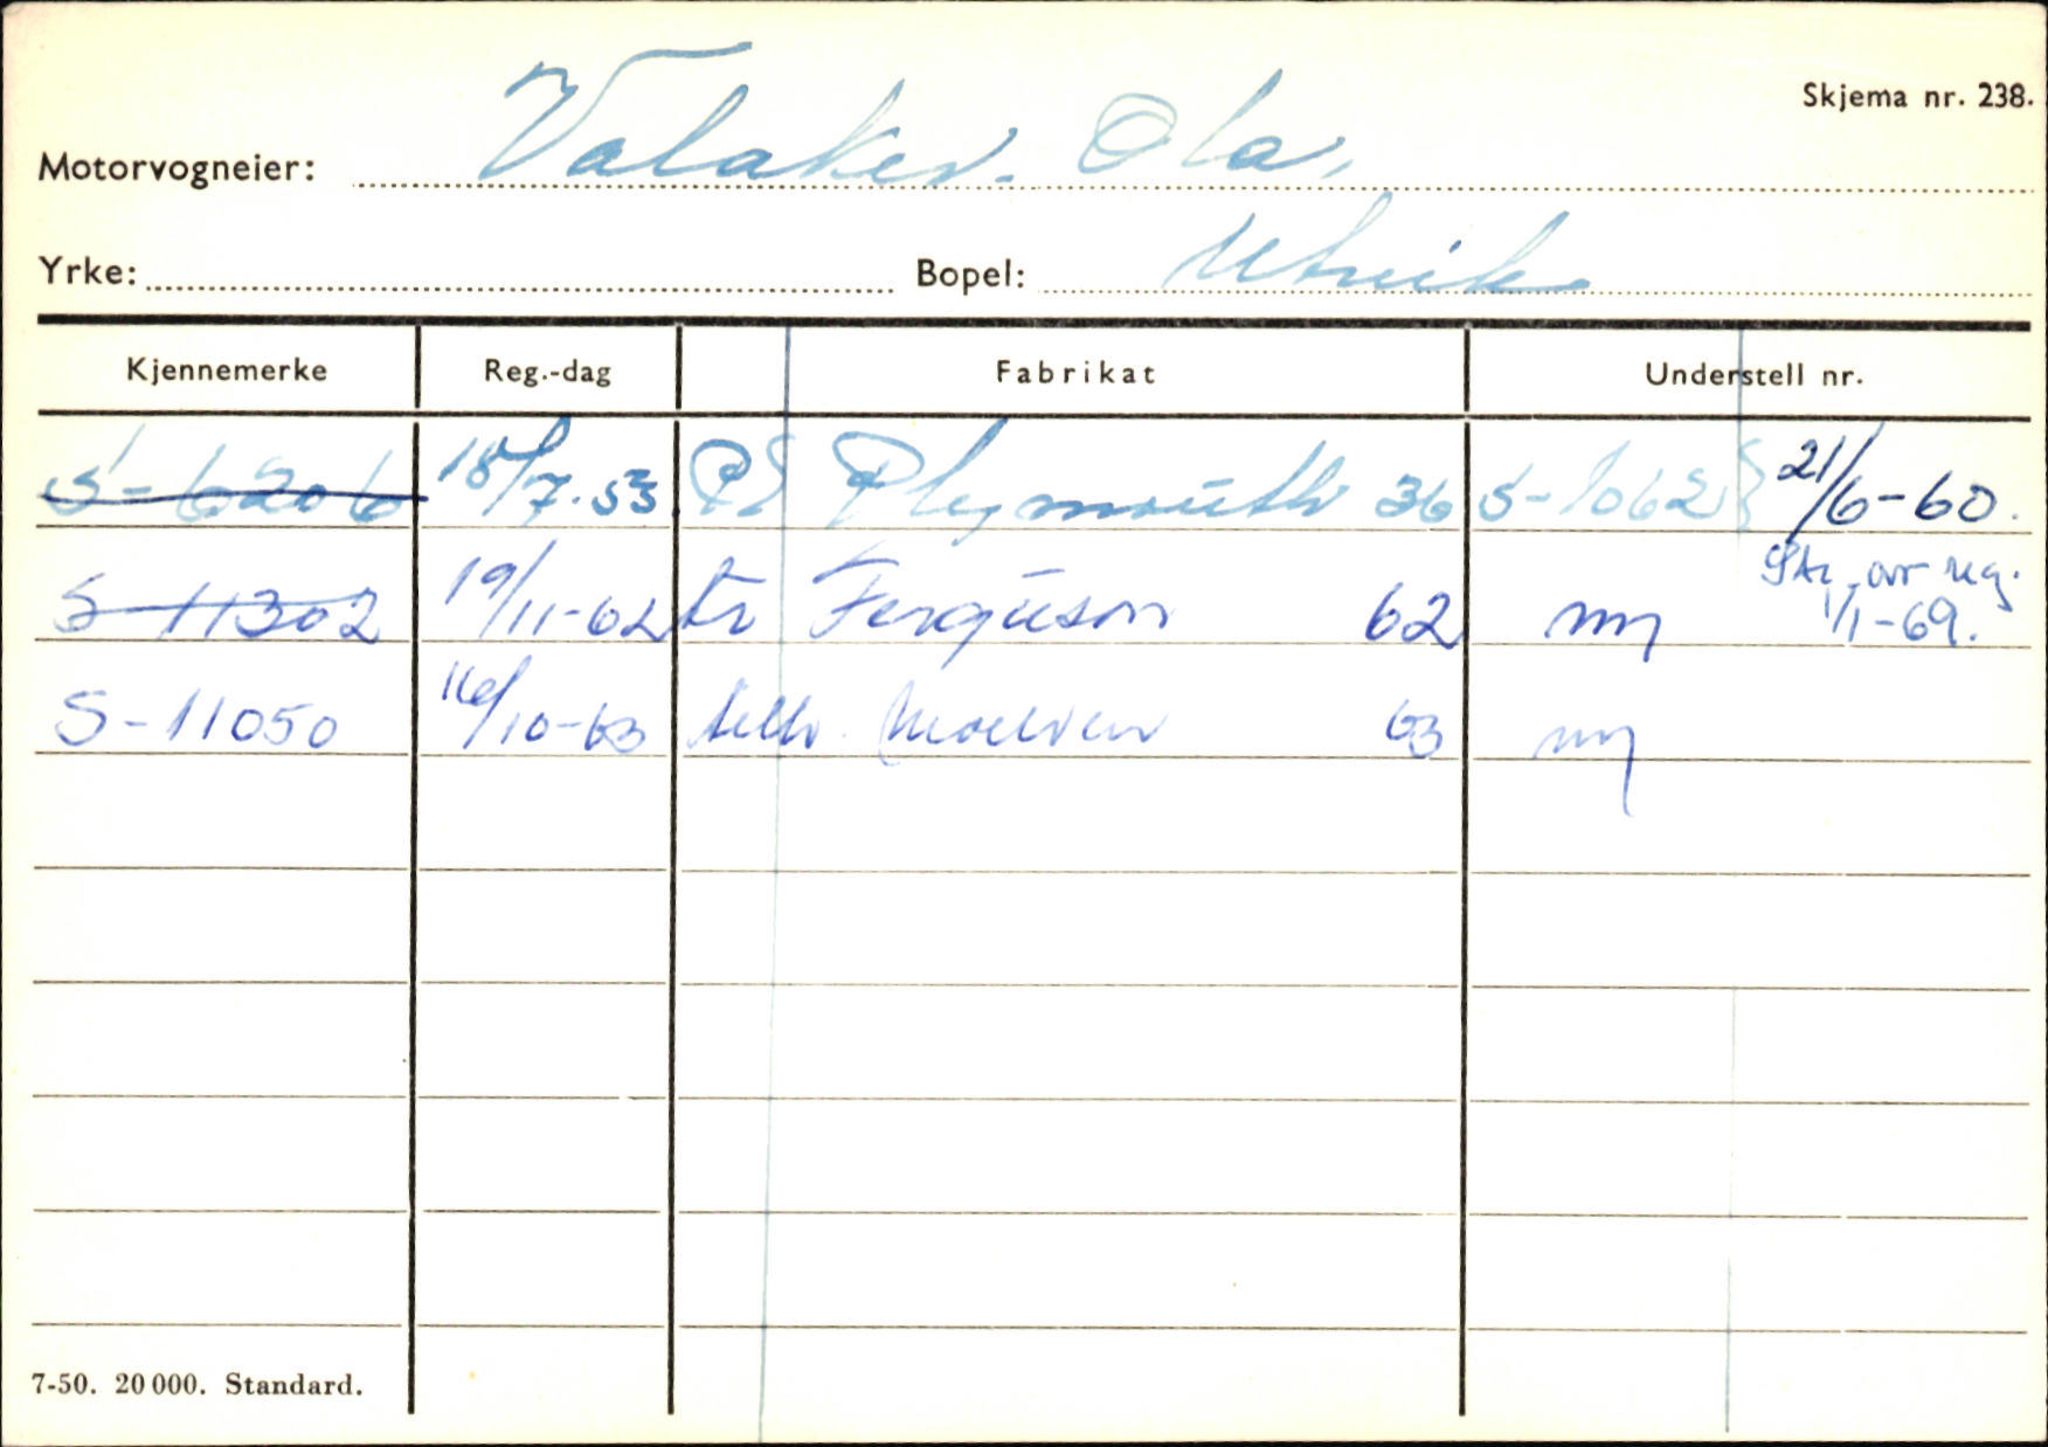 Skjema nr. 238.
Motorvogneier: Valaker. Ola,
Yrke: Bopel: Utvik
Kjennemerke Reg.-dag Fabrikat Understell nr.
S-6206 18/7.53 PS Plymouth 36 S-1062 21/6-60.
S-11302 19/11-62 tr Ferguson 62 ny Str. avr reg. 1/1-69.
S-11050 16/10-63 Moelven 63 ny
7-50. 20 000. Standard.